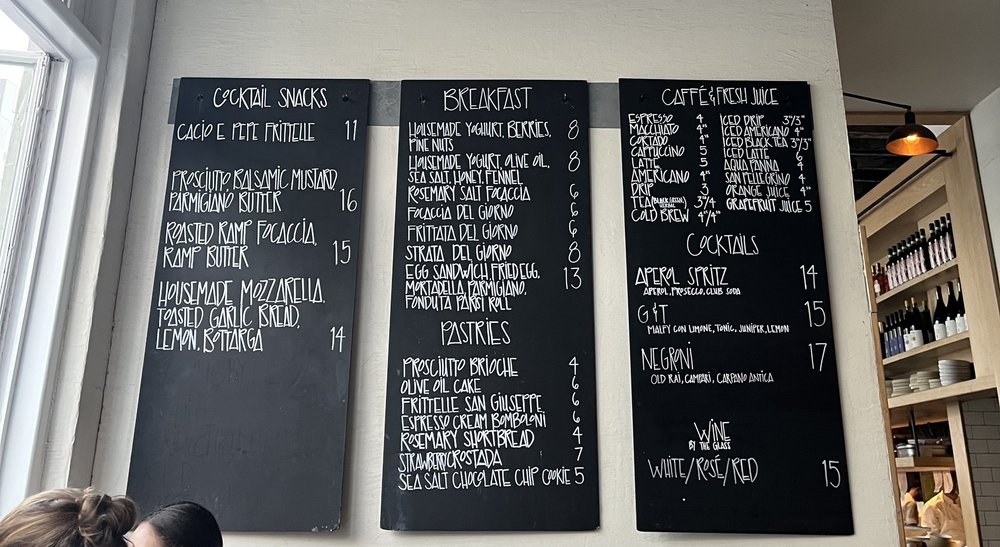 COCKTAIL SNACKS
CACIO E PEPE FRITTELLE 11
PROSCIUTO BALSAMIC MUSTARD,
PARMIGIANO BUTTER 16
ROASTED RAMP FOCACCIA,
RAMP BUTTER 15
HOUSEMADE MOZZARELLA,
TOASTED GARLIC BREAD,
LEMON, BOTTARGA 14
BREAKFAST
HOUSEMADE YOGHURT, BERRIES, 8
PINE NUTS
HOUSEMADE YOGURT, OLIVE OIL, 8
SEA SALT, HONEY, FENNEL
ROSEMARY SALT FOCACCIA 6
FOCACCIA DEL GIORNO 6
FRITTATA DEL GIORNO 6
STRATA DEL GIORNO 8
EGG SANDWICH, FRIED EGG, 13
MORTADELLA, PARMIGIANO,
FONDUTA PARISI ROLL
PASTRIES
PROSCIUTTO BRIOCHE 4
OLIVE OIL CAKE 6
FRITTELLE SAN GIUSEPPE 6
ESPRESSO CREAM BOMBOLONI 6
ROSEMARY SHORTBREAD 4
STRAWBERRY CROSTADA 7
SEA SALT CHOCOLATE CHIP COOKIE 5
CAFFÉ & FRESH JUICE
ESPRESSO 4
MACCHIATO 4"
CORTADO 4"
CAPPUCCINO 5
LATTE 5
AMERICANO 4"
DRIP 3
TEA (BLACK, GREEN, HERBAL) 3"/4
COLD BREW 4"/4"
ICED DRIP 3"/3"
ICED AMERICANO 4"
ICED BLACK TEA 3"/3"
ICED LATTE 6
AQUA PANNA 4
SAN PELLEGRINO 4
ORANGE JUICE 4"
GRAPEFRUIT JUICE 5
COCKTAILS
APEROL SPRITZ 14
APEROL, PROSECCO, CLUB SODA
G&T 15
MALFY CON LIMONE, TONIC, JUNIPER, LEMON
NEGRONI 17
OLD RAJ, CAMPARI, CARPANO ANTICA
WINE
BY THE GLASS
WHITE/ROSÉ/RED 15